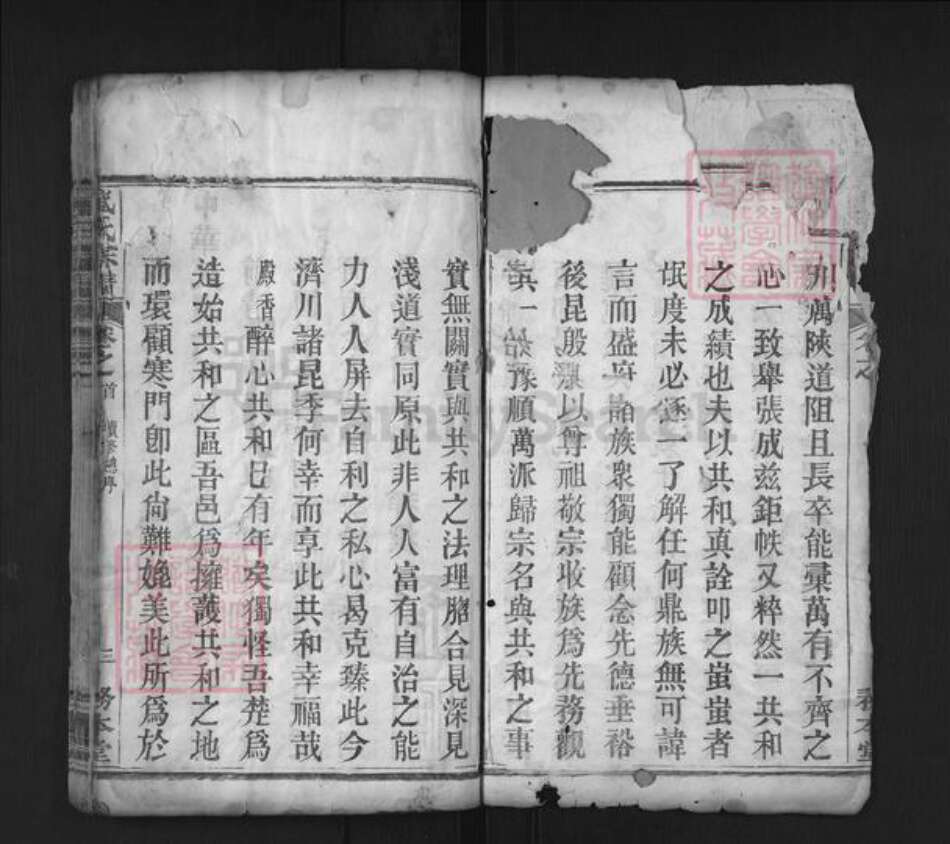 川萬陝道阻且長卒能彙萬有不齊之
心一致舉張成茲鉅帙又粹然一共和
之成績也夫以共和真詮叩之蚩蚩者
氓度未必逐一了解任何鼎族無可諱
言而盛府諸族衆獨能顧念先德垂裕
後昆殷以尊祖敬宗收族為先務觀
其一始豫順萬派歸宗名與共和之事
實無關實與共和之法理脗合見深見
淺道實同原此非人人富有自治之能
力人人屏去自利之私心曷克臻此今
濟川諸昆季何幸而享此共和幸福哉
殿香醉心共和已有年矣獨怪吾楚為
造始共和之區吾邑為擁護共和之地
而環顧寒門卽此尙難媲美此所為於
氏族譜 卷之首
二
務本堂
FamilySearch